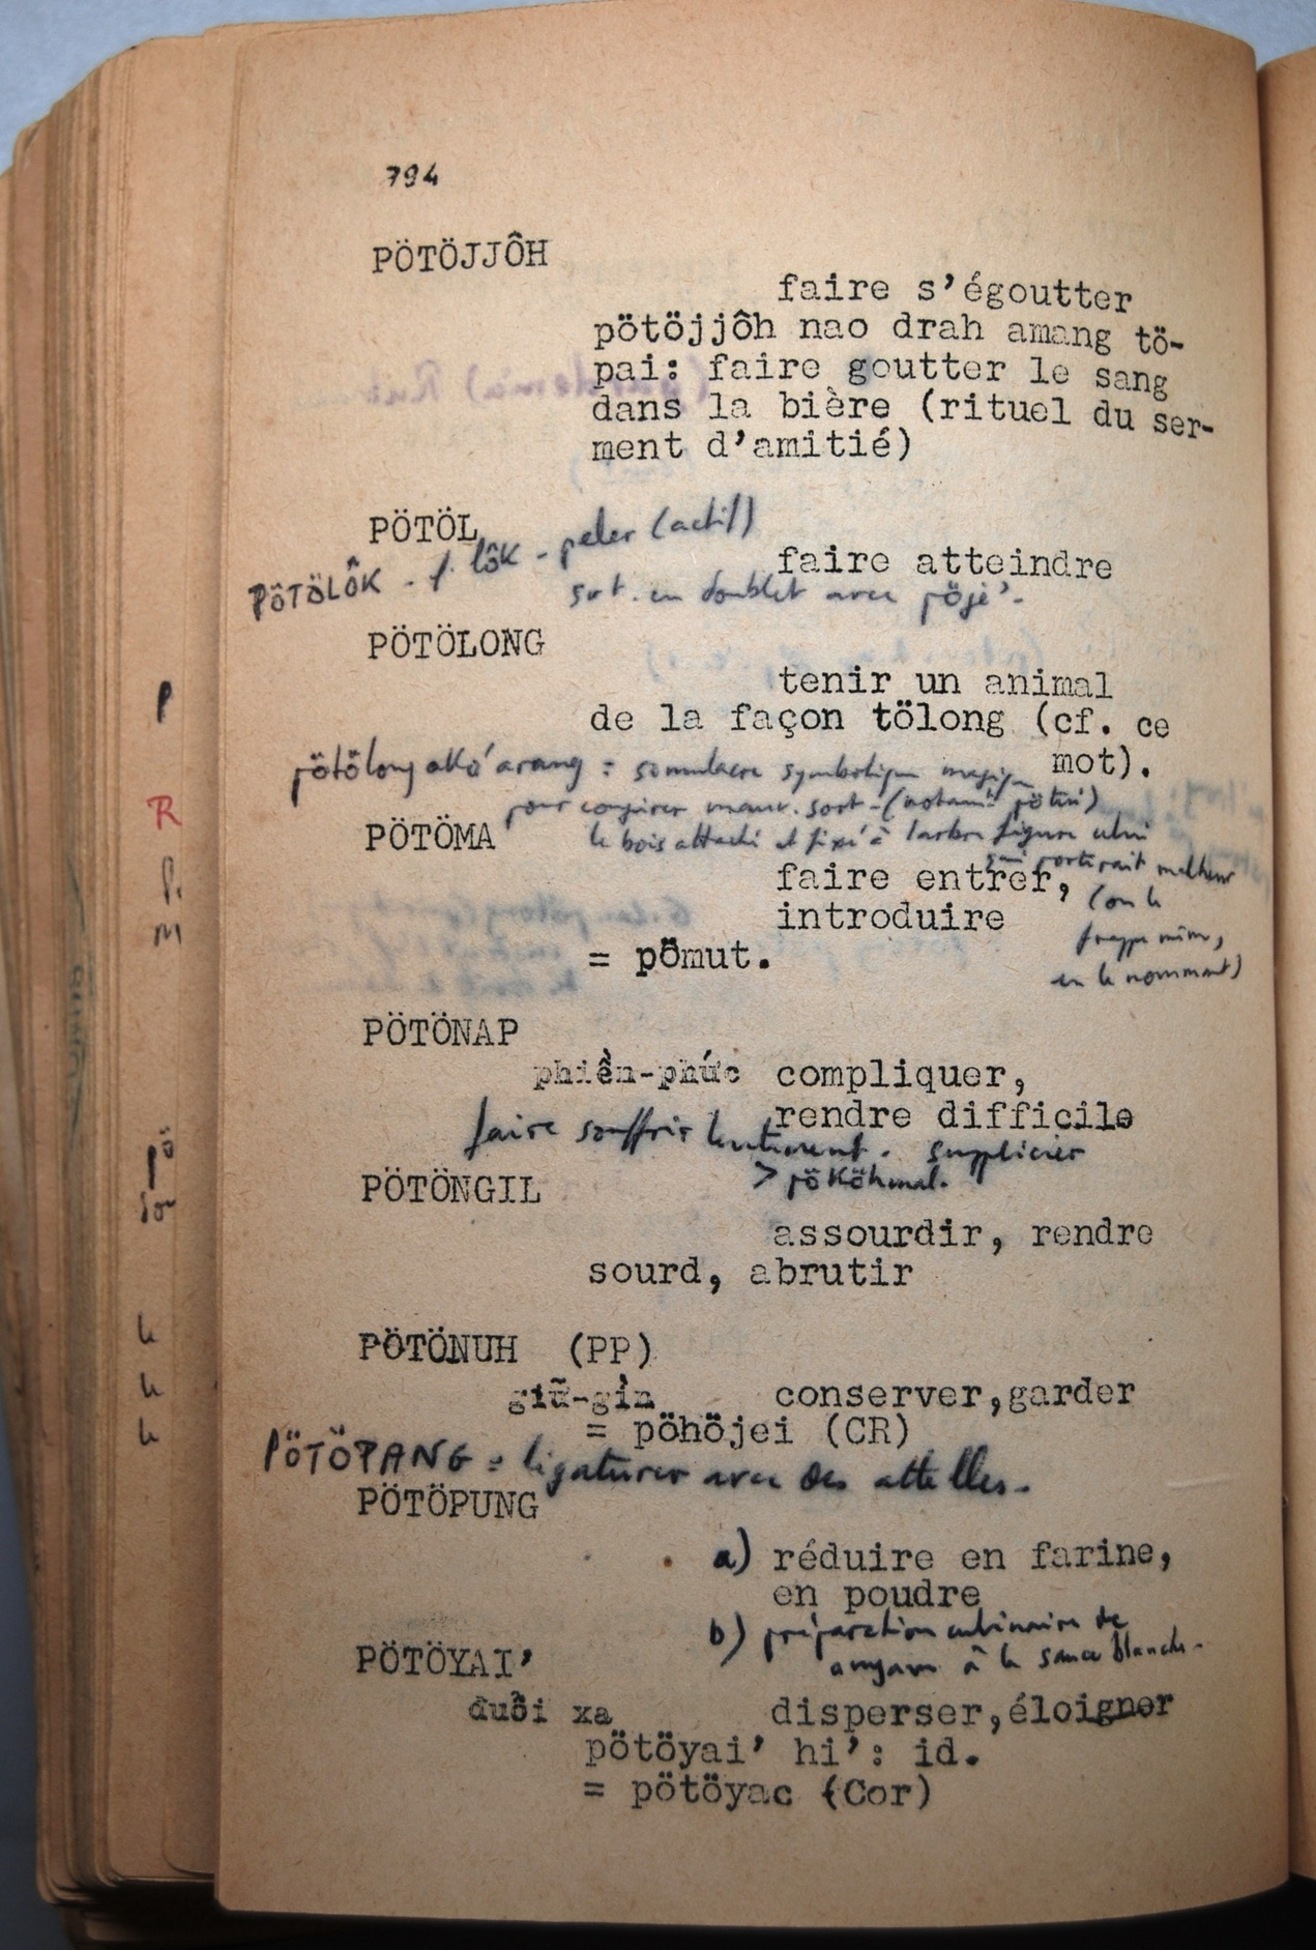 794
PÖTÖJJÔH
faire s’égoutter
pötöjjôh nao drah amang tö-
pai: faire goutter le sang
dans la bière (rituel du ser-
ment d’amitié)
PÖTÖL
faire atteindre
PÖTÖLÔK - f. lôk - peler (actif)
surt. en doublet avec pöjê’-
PÖTÖLONG
tenir un animal
de la façon tölong (cf. ce
mot).
pötölong akó arang = simulacre symbolique magique
pour conjurer mauv. sort - (notamt pötui)
le bois attaché et fixé à l'arbre figure celui
qui porterait malheur
(on le
frappe même,
en le nommant)
PÖTÖMA
faire entrer,
introduire
= pömut.
PÖTÖNAP
phiền-phức compliquer,
rendre difficile
faire souffrir lentement. supplicier
> pököhmal.
PÖTÖNGIL
assourdir, rendre
sourd, abrutir
PÖTÖNUH (PP)
giữ-gìn conserver,garder
= pöhöjei (CR)
PÖTÖPANG = ligaturer avec des attelles.
PÖTÖPUNG
a) réduire en farine,
en poudre
b) préparation culinaire de
à la sauce blanche.
PÖTÖYAI’
đuổi xa disperser,éloigner
pötöyai’ hi’: id.
= pötöyac (Cor)
P
R
P.
M
pö
le
le
le